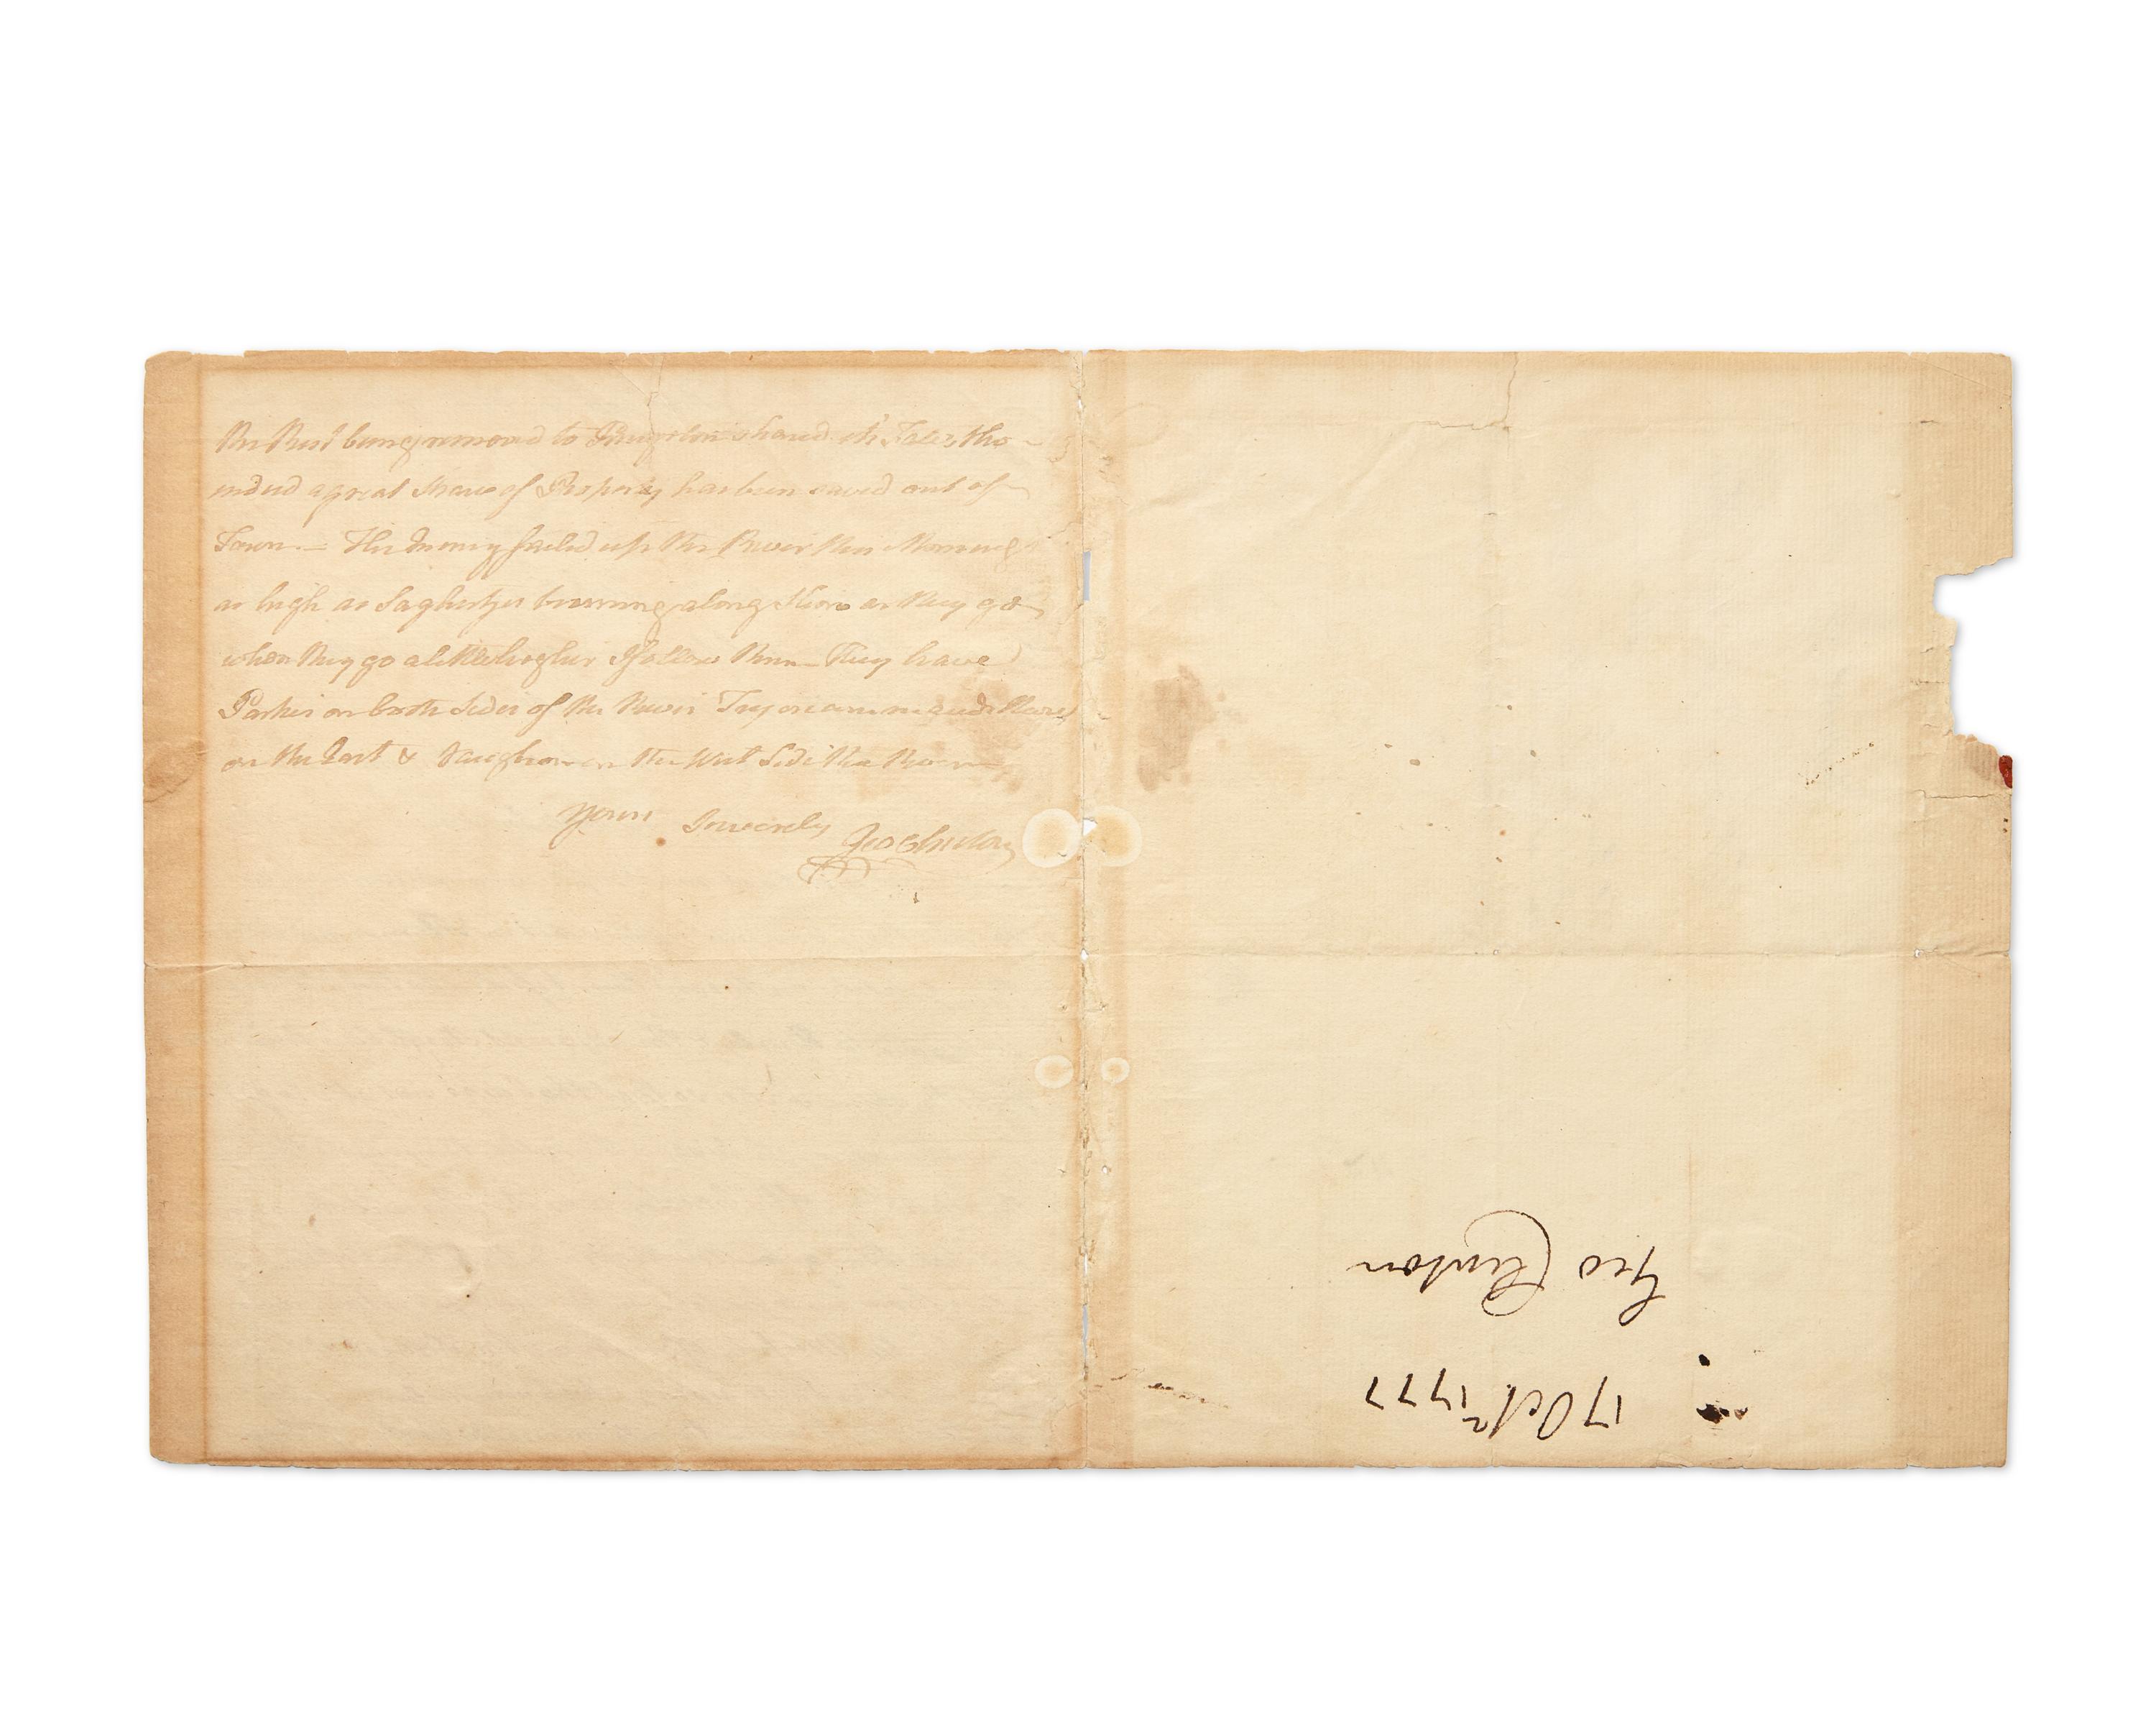 the Rest being removed to Kingston shared its Fate, tho
indeed a great Share of Property has been saved out of
Town — The Enemy sailed up the River this Morning
as high as Saghertys burning along Shore as they go
when they go a little higher I follow them — They have
Parties on both Sides of the River Tryon commands those
on the East & Vaughan on the West Side the River
Yours Sincerely Geo Clinton
Geo Clinton
17 Octr 1777